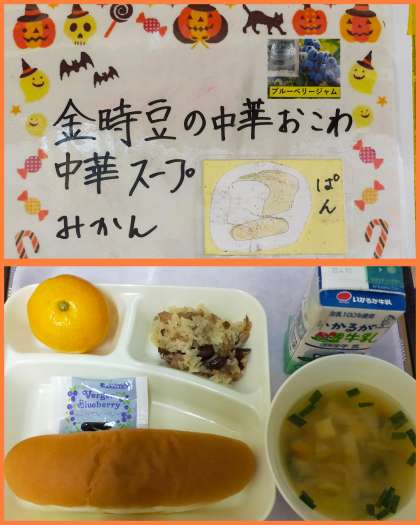 ブルーベリージャム
金時豆の中華おこわ
中華スープ
ぱん
みかん
いかるが牛乳
いかるが
牛乳
Blueberry